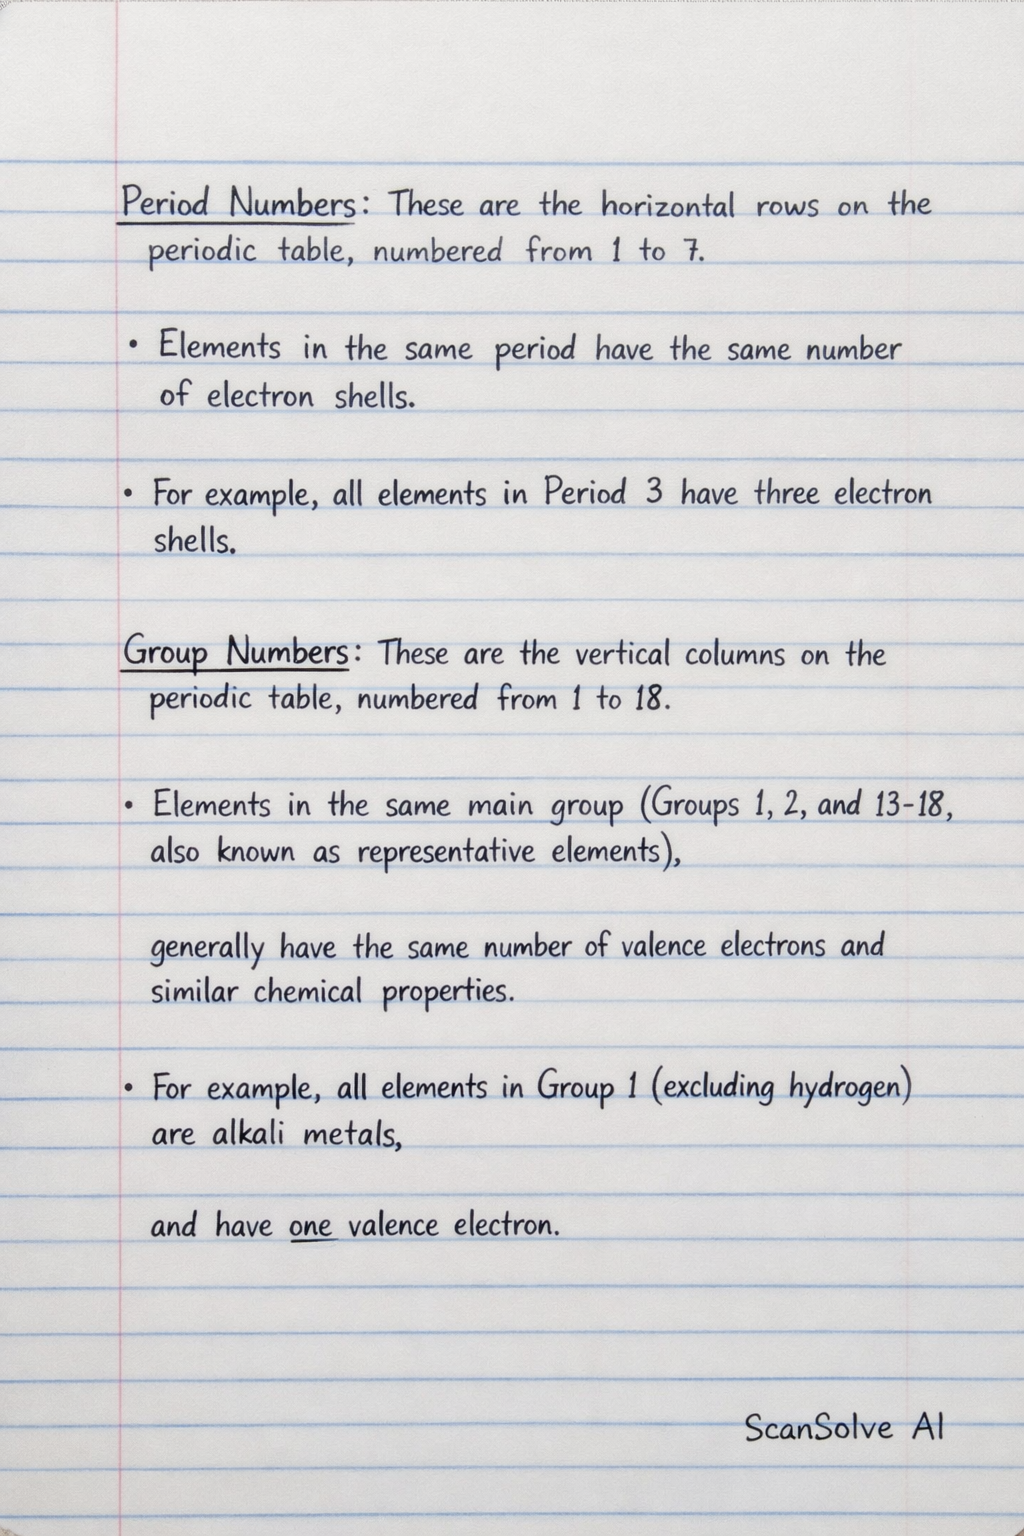 Period Numbers: These are the horizontal rows on the
periodic table, numbered from 1 to 7.
• Elements in the same period have the same number
of electron shells.
• For example, all elements in Period 3 have three electron
shells.
Group Numbers: These are the vertical columns on the
periodic table, numbered from 1 to 18.
• Elements in the same main group (Groups 1, 2, and 13-18,
also known as representative elements),
generally have the same number of valence electrons and
similar chemical properties.
• For example, all elements in Group 1 (excluding hydrogen)
are alkali metals,
and have one valence electron.
ScanSolve AI